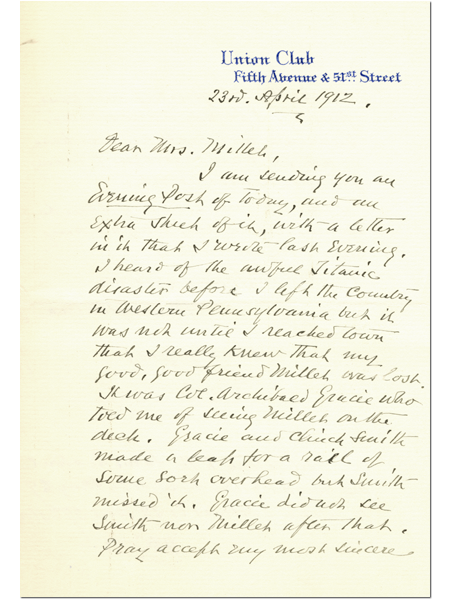 Union Club
Fifth Avenue & 51st Street
23rd. April 1912.
Dear Mrs. Millet,
I am sending you an
Evening Post of today, and an
Extra sheet of it, with a letter
in it that I wrote last Evening.
I heard of the awful Titanic
disaster before I left the Country
in Western Pennsylvania but it
was not until I reached town
that I really knew that my
good, good friend Millet was lost.
It was Col. Archibald Gracie who
told me of seeing Millet on the
deck. Gracie and Clinch Smith
made a leap for a rail of
some sort overhead but Smith
missed it. Gracie did not see
Smith nor Millet after that.
Pray accept my most sincere